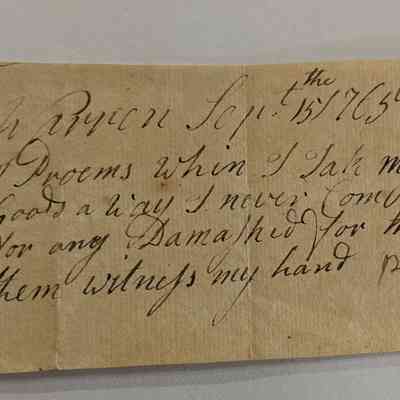 Warren Sept. the 15 1765
I Proems When I Tak m
Goods a Way I never Come
for any Damashid for th
them witness my hand